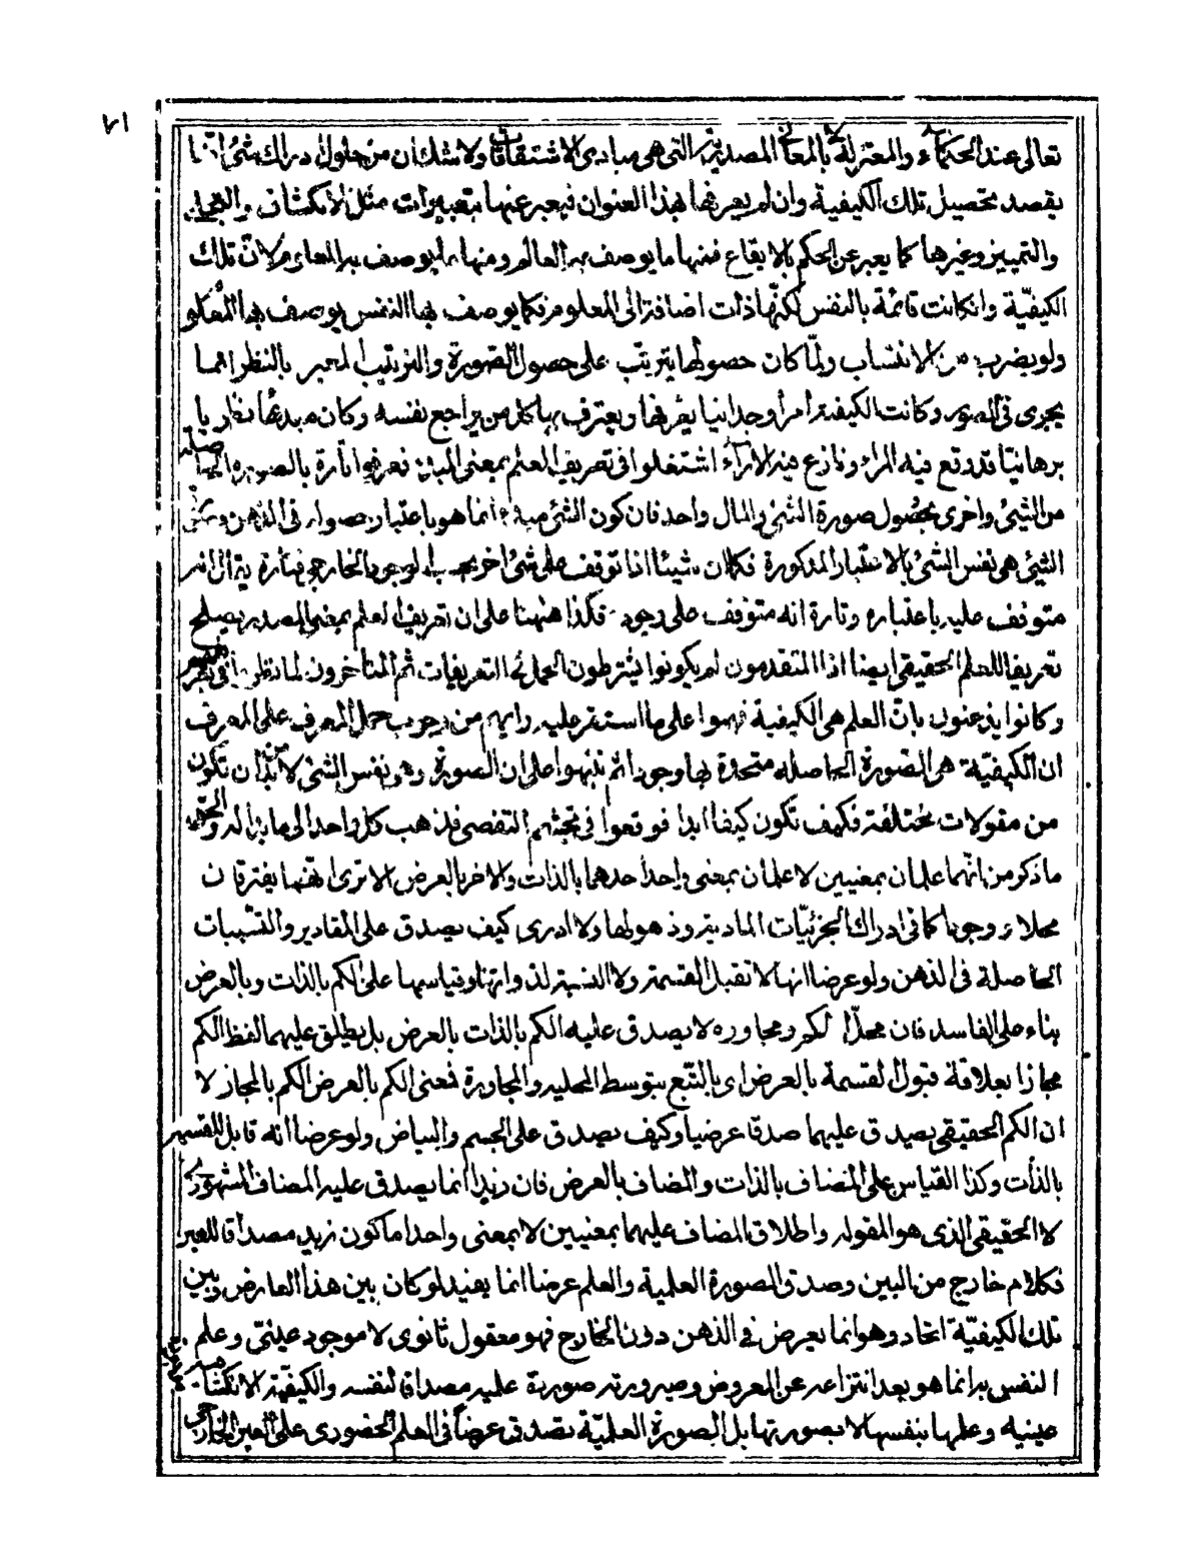 ٢١
تعالى عند الحكماء والمعتزلة بالمعانى المصدرية التى هى مبادى الاشتقاقات ولا شك ان من حاول ادراك شئ انما
يقصد تحصيل تلك الكيفية وان لم يعرفها بهذا العنوان فيعبر عنها بتعبيرات مثل الانكشاف والتجلى
والتمييز وغيرها كما يعبر عن الحكم بالايقاع فمنها ما يوصف به العالم ومنها ما يوصف به المعلوم لان تلك
الكيفيّة وانكانت قائمة بالنفس لكنّها ذات اضافة الى المعلوم فكما يوصف بها النفس يوصف بها المعلوم
ولو بضرب من الانتساب ولمّا كان حصولها يترتب على حصول الصورة والترتيب المعبر بالنظر انما
يجرى فى الصور وكانت الكيفية امرا وجدانيا يعرفها ويعترف بها كل من يراجع نفسه وكان مبدءها نظريا
برهانيّا قد وقع فيه المراء وتنازع فيه الآراء اشتغلوا فى تعريف العلم بمعنى المبدء فعرفوا تارة بالصورة الحاصلة
من الشئ واخرى بحصول صورة الشئ والمال واحد فان كون الشئ مبدء انما هو باعتبار حصوله فى الذهن و
الشئ هى نفس الشئ بالاعتبار المذكورة فكما ان شيئا اذا توقف على شئ اخر بحسب الوجود الخارجى فتارة يقال انه
متوقف عليه باعتباره وتارة انه متوقف على وجوده فكذا ههنا على ان تعريف العلم بمعنى المصدر يصلح
تعريفا للعلم الحقيقى ايضا اذ المتقدمون لم يكونوا يشترطون الحمل فى التعريفات ثم المتاخرون لما نظروا فى تعريفهم
وكانوا يذعنون بانّ العلم هى الكيفية فهموا على ما استقر عليه رايهم من وجوب حمل المعرف على المعرف
ان الكيفيّة هى الصورة الحاصله متحدة بها وجودا ثم نبهوا على ان الصورة هى نفس الشئ لابدّ ان تكون
من مقولات مختلفة فكيف تكون كيفا ابدا فوقعوا فى التفصى فذهب كل واحد الى ما بدا له والحق
ما ذكر من انّهما علمان بمعنيين لا علمان بمعنى واحد احدهما بالذات والاخر بالعرض الا ترى انهما يفترقان
محلا ووجودا كما فى ادراك الجزئيّات المادية وذهولها ولا ادرى كيف يصدق على المقادير والنسبات
الحاصلة فى الذهن ولو عرضا انها لا تقبل القسمة ولا النسبة لذواتها وقياسها على الكم بالذات وبالعرض
بناء على الفاسد فان محلّ الكم ومجاوره لا يصدق عليه الكم بالذات بالعرض بل يطلق عليهما لفظ الكم
مجازا بعلاقة قبول القسمة بالعرض اى بالتبع بتوسط المحلية والمجاورة فمعنى الكم بالعرض الكم بالمجاز لا
ان الكم الحقيقى يصدق عليهما صدقا عرضيا وكيف يصدق على الجسم والبياض ولو عرضا انه قابل للقسمة
بالذات وكذا القياس على المضاف بالذات والمضاف بالعرض فان زيدا انما يصدق عليه المضاف المشهورى
لا الحقيقى الذى هو المقوله واطلاق المضاف عليهما بمعنيين لا بمعنى واحد اما كون زيد مصداقا للعبر
فكلام خارج من البين وصدق الصورة العلمية والعلم عرضا انما يفيد لو كان بين هذا العارض وبين
تلك الكيفيّة اتحاد وهو انما يعرض فى الذهن دون الخارج فهو معقول ثانوى لا موجود عينىّ وعلم
النفس به انما هو بعد انتزاعه عن المعروض وصيرورته صورة علمية مصداقا لنفسه والكيفية الانكشافية
عينيه وعلمها بنفسها لا بصورتها بل الصورة العلميّة تصدق عرضاً فى العلم الحضورى على العين الخارجى